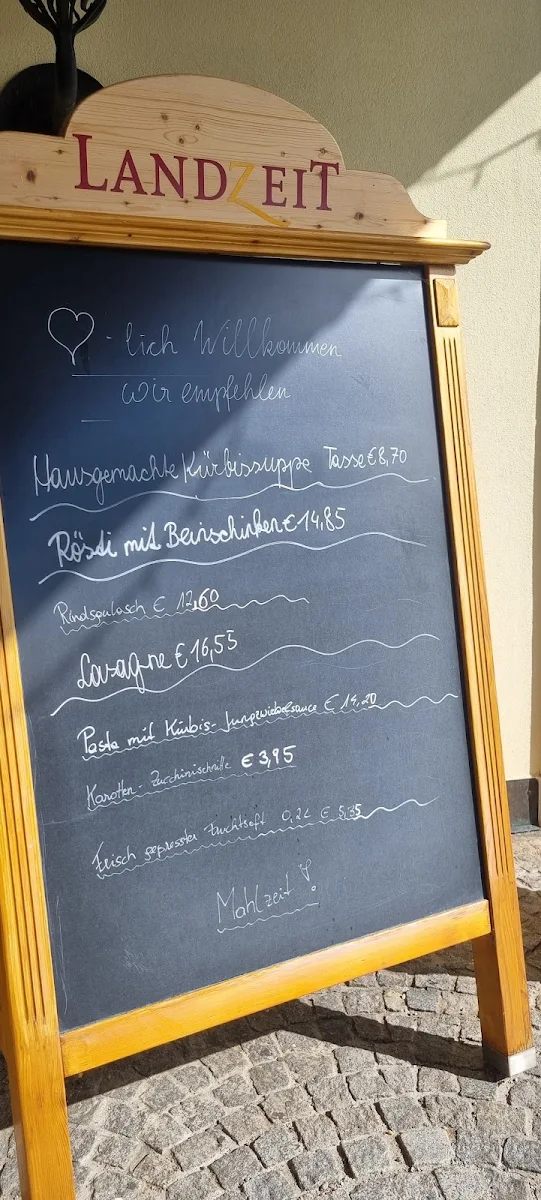 LANDZEIT
♡-lich Willkommen
wir empfehlen
Hausgemachte Kürbissuppe Tasse € 8,70
Rösti mit Beinschinken € 14,85
Rindsgulasch € 12,60
Lasagne € 16,55
Pasta mit Kürbis-Jungzwiebelsauce € 14,20
Karotten-Zucchinischnitte € 3,95
Frisch gepresster Fruchtsaft 0,2L € 5,35
Mahlzeit!